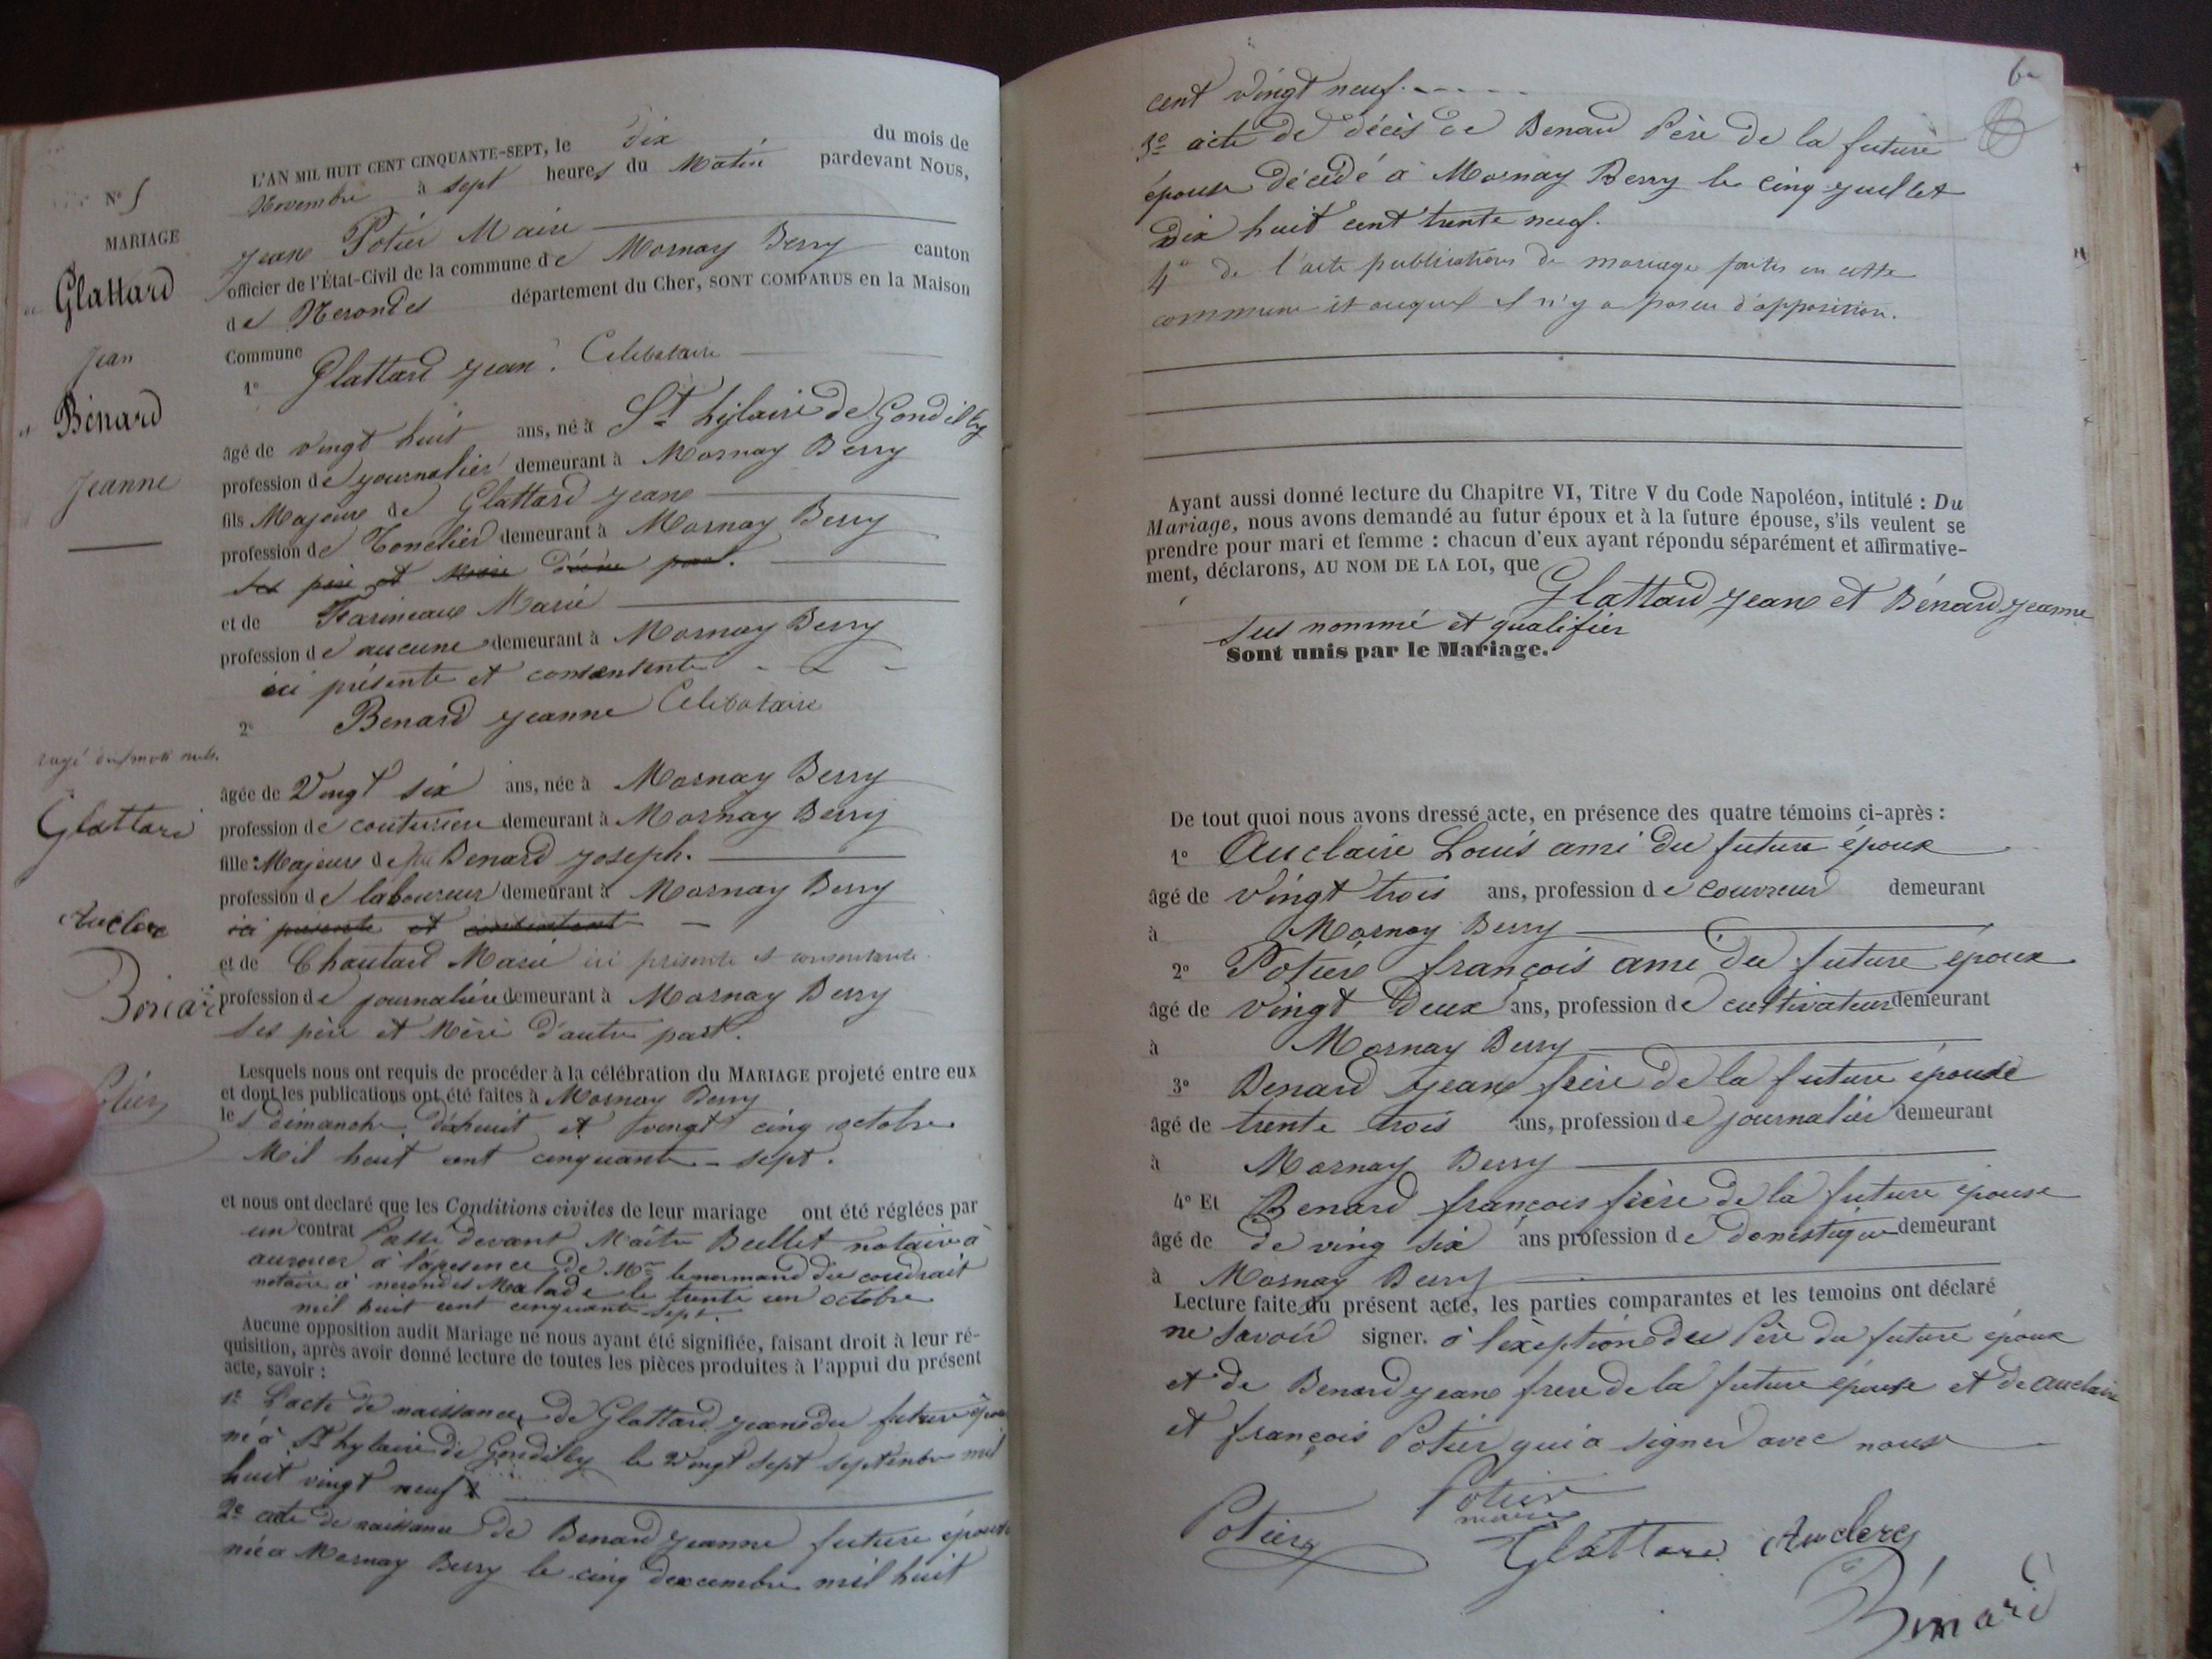 N° 5
MARIAGE
de Glattard
Jean
et Bénard
Jeanne
rayé dix mots nuls
Glattard
Auclerc
Bénard
Potier
L'AN MIL HUIT CENT CINQUANTE-SEPT, le dix du mois de
Novembre à sept heures du Matin pardevant NOUS,
Jean Potier Maire
officier de l'État-Civil de la commune de Mornay Berry canton
de Nerondes département du Cher, SONT COMPARUS en la Maison
Commune
1° Glattard Jean. Celibataire
âgé de vingt huit ans, né à St hylaire de Gondilly
profession de journalier demeurant à Mornay Berry
fils Majeure de Glattard Jean
profession de Tonelier demeurant à Mornay Berry
ses père et Mère d'une part.
et de Farineau Marie
profession de aucune demeurant à Mornay Berry
ici présente et consentente
2° Benard Jeanne Celibataire
âgée de Vingt six ans, née à Mornay Berry
profession de couturiere demeurant à Mornay Berry
fille Majeure de feu Benard Joseph.
profession de laboureur demeurant à Mornay Berry
ici présente et consentent
et de Chautard Marie ici présente et consentante
profession de journalière demeurant à Mornay Berry
ses père et Mère d'autre part.
Lesquels nous ont requis de procéder à la célébration du MARIAGE projeté entre eux
et dont les publications ont été faites à Mornay Berry
les dimanche dixhuit et vingt cinq octobre
Mil huit cent cinquante-sept.
et nous ont declaré que les Conditions civiles de leur mariage ont été réglées par
un contrat Passé devant Maître Bullet notaire à
aurouer à l'apesence de Mre lenormand du coudrait
notaire à nerondes Malade le trente un octobre
mil huit cent cinquante sept.
Aucune opposition audit Mariage ne nous ayant été signifiée, faisant droit à leur ré-
quisition, après avoir donné lecture de toutes les pièces produites à l'appui du présent
acte, savoir :
1° L'acte de naissance de Glattard Jean du future époux
né à St hylaire de Gondilly le Vingt sept septenbre mil
huit vingt neuf
2e acte de naissance de Benard Jeanne future épouse
née à Mornay Berry le cinq dexcembre mil huit
6
cent vingt neuf.
3e acte de décès de Benard Père de la future
épouse décédé à Mornay Berry le cinq juillet
dix huit cent trente neuf.
4° de l'acte publications de mariage faites en cette
commune et auquel il n'y a pas eu d'opposition.
Ayant aussi donné lecture du Chapitre VI, Titre V du Code Napoléon, intitulé : Du
Mariage, nous avons demandé au futur époux et à la future épouse, s'ils veulent se
prendre pour mari et femme : chacun d'eux ayant répondu séparément et affirmative-
ment, déclarons, AU NOM DE LA LOI, que
Glattard Jean et Bénard Jeanne
sus nommé et qualifier
Sont unis par le Mariage.
De tout quoi nous avons dressé acte, en présence des quatre témoins ci-après :
1° Auclaire Louis ami du future époux
âgé de vingt trois ans, profession de couvreur demeurant
à Mornay Berry
2° Potier françois ami du future époux
âgé de vingt deux ans, profession de cultivateur demeurant
à Mornay Berry
3° Benard Jean frère de la future épouse
âgé de trente trois ans, profession de journalier demeurant
à Mornay Berry
4° Et Benard françois frère de la future épouse
âgé de de ving six ans profession de domestique demeurant
à Mornay Berry
Lecture faite du présent acte, les parties comparantes et les temoins ont déclaré
ne savoir signer. à l'éxeption du Père du future époux
et de Benard Jean frere de la future épouse et de auclaire
et françois Potier qui a signer avec nous
Potier
Potier
maire
Glattard
Auclerc
Bénard